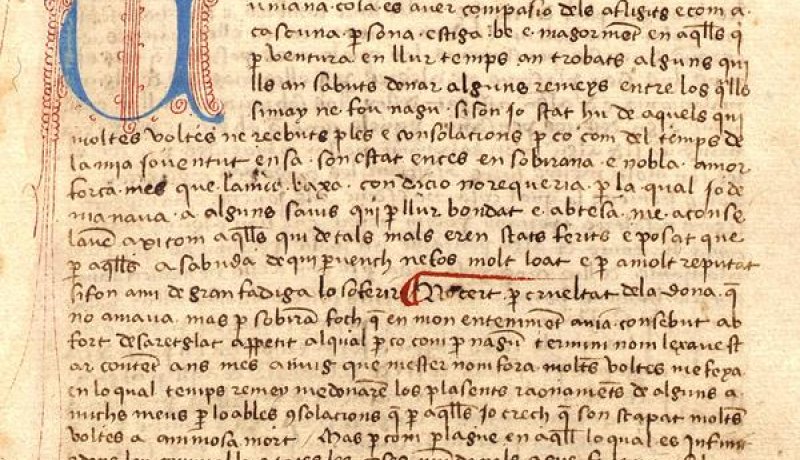 U
umana cosa es aver compasio dels afligits e com a
cascuna p̱sona estiga be e maiorme͂t en aq̃lls q̃
p̱ ventura en llur temps an trobats alguns qui
lls an sabuts donar alguns remeys entre los q̃lls
si may ne fou nagu si son jo stat hu de aquels qui
moltes voltes ne reebuts ples e consolacions p̱ ço com del temps de
la mia joventut ensa son estat ences en sobirana e nobla amor
força mes que la mia baxa condicio no requeria p̱ la qual jo de
manava a alguns savis qui p̱ llur bondat e abtesa me aconse
lave͂ axi com aq̃lls qui de tals mals eren stats ferits e posat que
p̱ aq̃lls a sabuda de qui p̱vench ne fos molt loat e p̱ a molt reputat
si fon a mi de gran fadiga lo soferir No cert p̱ crueltat dela dona q̃
yo amava mas p̱ sobira͂ foch q̃ en mon enteniment avia consebut ab
fort desaretglat appetit al qual p̱ ço com p̱ nagu͂ termini nom lexave st
ar conte͂t ans mes anuig que mester nom fora molt͂s voltes me feya
en lo qual temps remey me donare͂ los plasents raoname͂ts de alguns a
michs meus p̱ loables ꝯsolacions q̃ p̱ aq̃lls jo crech q̃ son stapat molt͂s
voltes a animosa mort / Mas p̱ com p̱ lague en aq̃ll lo qual es infini